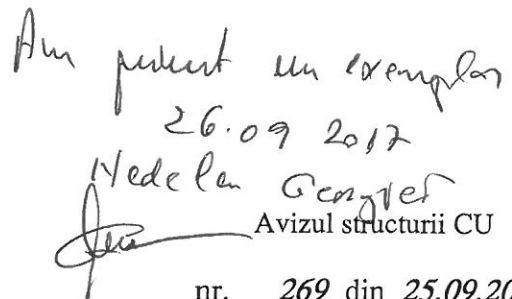 Am primit un exemplar
26.09 2017
Nedelcu
Avizul structurii CU
nr. 269 din 25.09.20